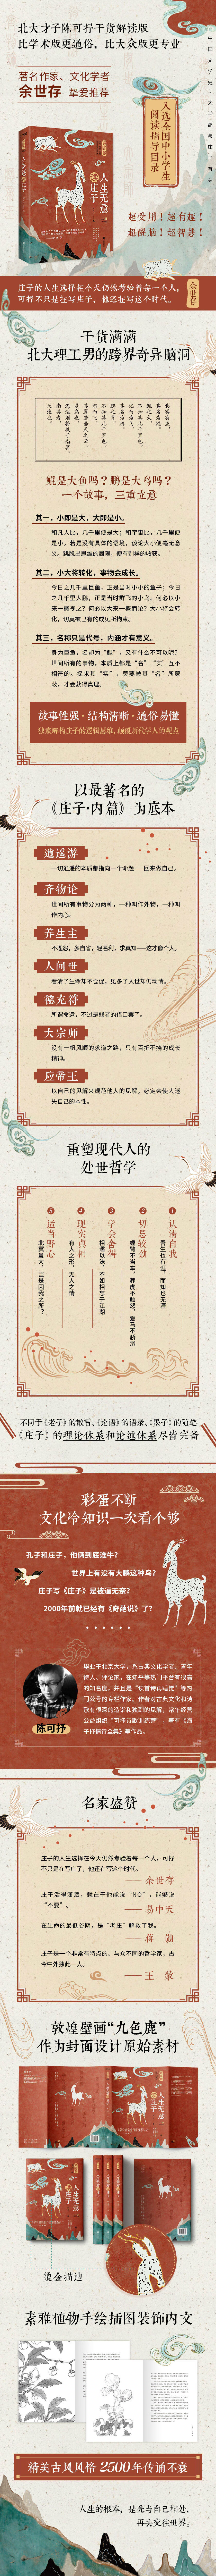 北大才子陈可抒干货解读版
比学术版更通俗，比大众版更专业
中国文学史，大半都与庄子有关
著名作家、文化学者
余世存 挚爱推荐
入选全国中小学生
阅读指导目录
人生无意
读庄子
超受用！超有趣！
超醒脑！超智慧！
庄子的人生选择在今天仍然考验着每一个人，
可抒不只是在写庄子，他还在写这个时代。
余世存
干货满满
北大理工男的跨界奇异脑洞
鲲是大鱼吗？鹏是大鸟吗？
一个故事，三重立意
其一，小即是大，大即是小。
和凡人比，几千里便是大；和宇宙比，几千里便
是小。若是没有具体的语境，谈论大小便毫无意
义。跳脱出思维的局限，便有别样的收获。
其二，小大将转化，事物会成长。
今日之几千里巨鱼，正是当时小小的鱼子；今日
之几千里大鹏，正是当时群飞的小鸟。何必以小
来一概视之？何必以大来一概而论？大小将会转
化，切莫被已有的成见所拘束。
其三，名称只是代号，内涵才有意义。
身为巨鱼，名却为“鲲”，又有什么不可以呢？
世间所有的事物，本质上都是“名”“实”互不
相符的。探求其“实”，莫要被其“名”所蒙
蔽，才会获得真理。
故事性强·结构清晰·通俗易懂
独家解构庄子的逻辑思维，颠覆历代学人的观点
以最著名的
《庄子·内篇》为底本
逍遥游
一切逍遥的本质都指向一个命题——回来做自己。
齐物论
世间所有事物分为两种，一种叫作外物，一种叫
作内心。
养生主
不埋怨，多自省，轻名利，求真知——这才像个人。
人间世
看清了生命却不仓促，见多了人世却仍动情。
德充符
所谓命运，不过是弱者的借口罢了。
大宗师
没有一帆风顺的求道之路，只有百折不挠的成长
精神。
应帝王
以自己的见解来规范他人的见解，必定会使人迷
失自己的本性。
重塑现代人的
处世哲学
1 认清自我
吾生也有涯，而知也无涯
2 切忌较劲
螳臂不当车，养虎不触怒，爱马不骄溺
3 学会舍得
相濡以沫，不如相忘于江湖
4 现实真相
有人之形，无人之情
5 适当野心
北冥虽大，岂是囚我之所？
不同于《老子》的散言、《论语》的语录、《墨子》的随笔
《庄子》的理论体系和论述体系尽皆完备
彩蛋不断
文化冷知识一次看个够
孔子和庄子，他俩到底谁牛？
世界上有没有大鹏这种鸟？
庄子写《庄子》是被逼无奈？
2000年前就已经有《奇葩说》了？
陈可抒
毕业于北京大学，系古典文化学者、青年
诗人、评论家，在知乎等热门平台有很高
的知名度，并且是“读首诗再睡觉”等热
门公号的专栏作家。作者对古典文化和诗
歌有很深的造诣和独到的见解，常年经营
公益组织“可抒诗歌训练营”，著有《海
子抒情诗全集》等作品。
名家盛赞
庄子的人生选择在今天仍然考验着每一个人，可抒
不只是在写庄子，他还在写这个时代。
——余世存
庄子活得潇洒，就在于他能说“NO”，能够说
“不要”。
——易中天
在生命的最低谷期，是“老庄”解救了我。
——蒋勋
庄子是一个非常有特点的、与众不同的哲学家，古
今中外独此一人。
——王蒙
敦煌壁画“九色鹿”
作为封面设计原始素材
烫金描边
素雅植物手绘插图装饰内文
精美古风风格 2500年传诵不衰
人生的根本，是先与自己相处，
再去交往世界。